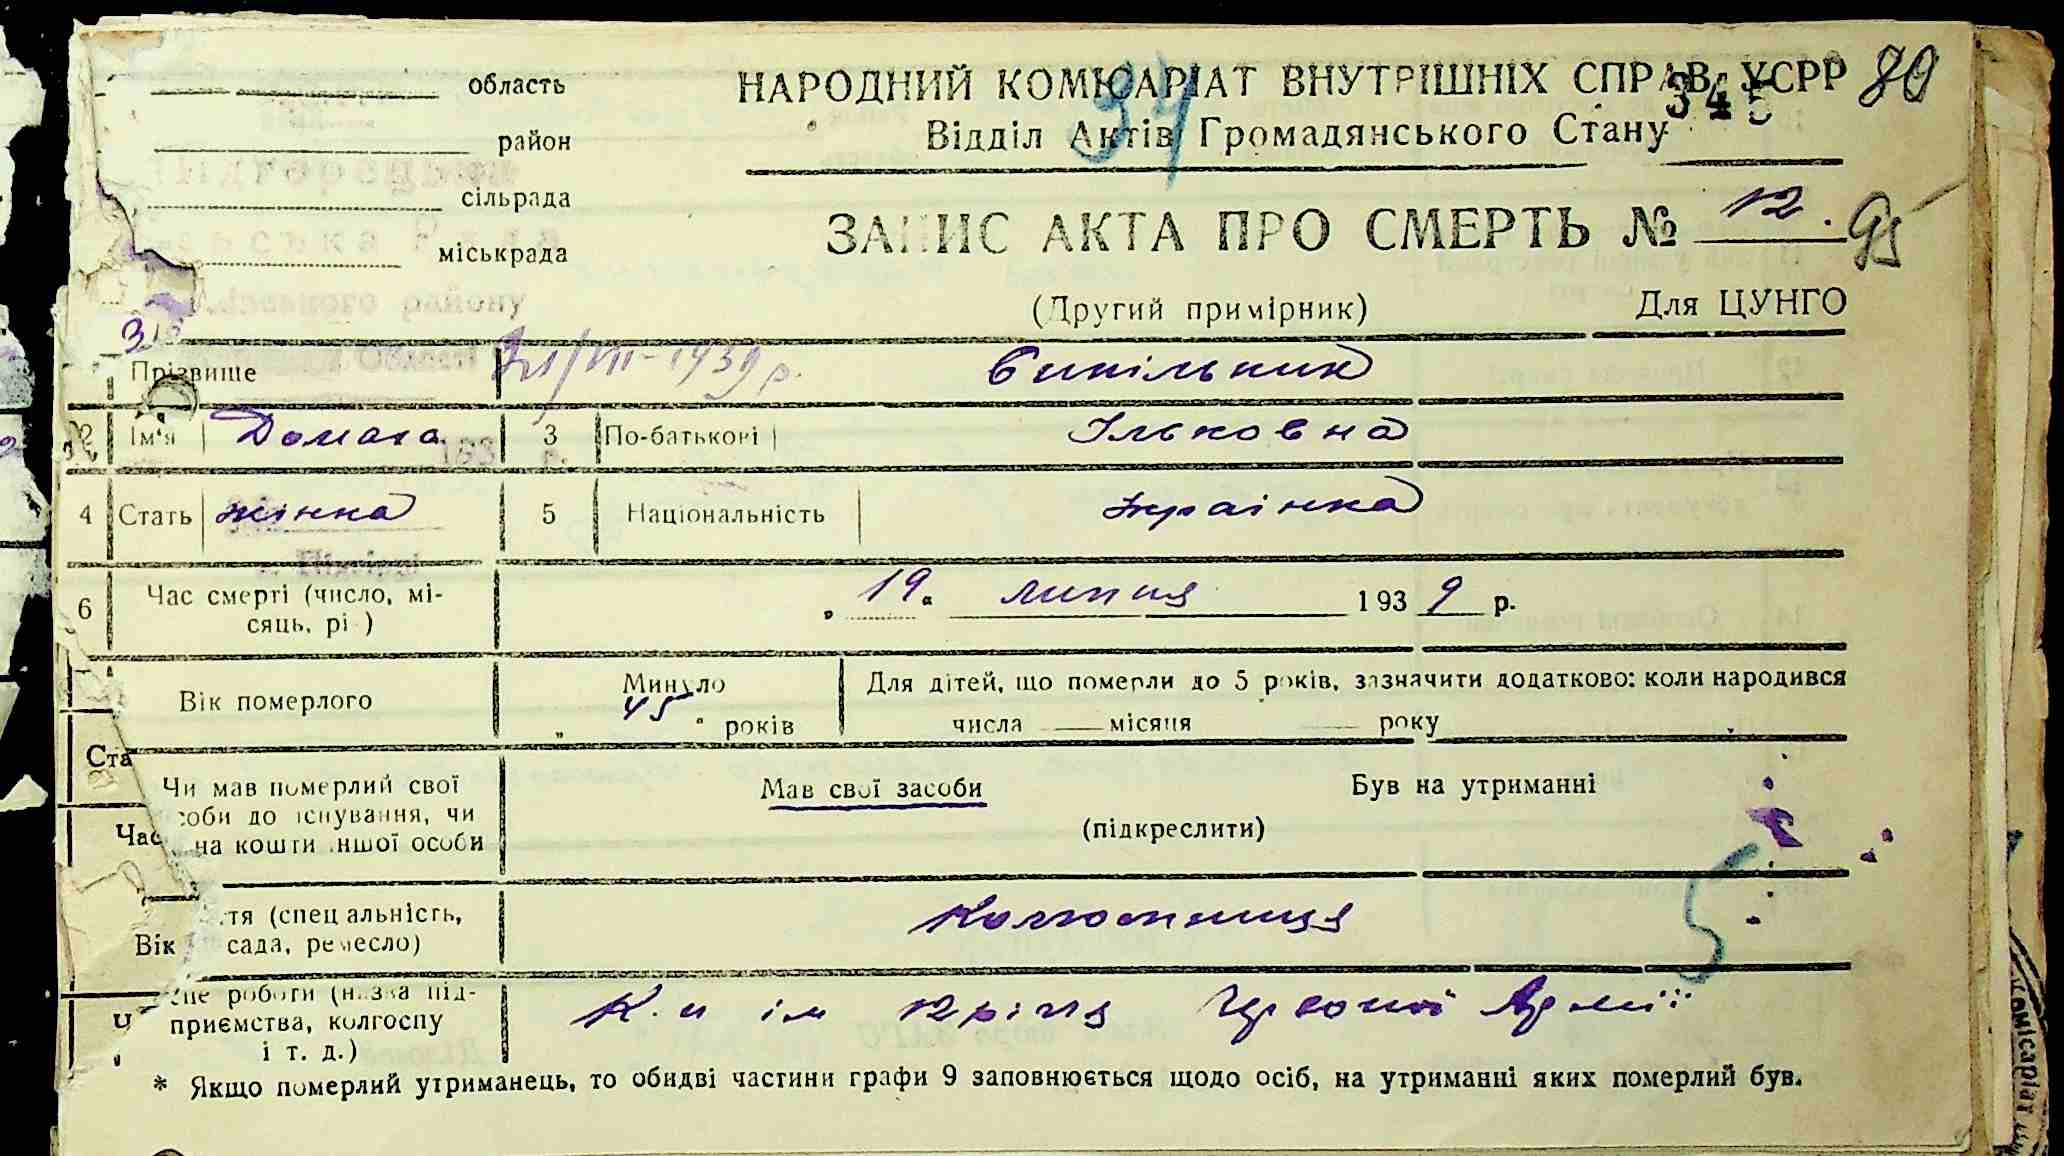 область
район
сільрада
міськрада
НАРОДНИЙ КОМІСАРІАТ ВНУТРІШНІХ СПРАВ УСРР 80
34 345
Відділ Актів Громадянського Стану
ЗАПИС АКТА ПРО СМЕРТЬ № 12. 95
(Другий примірник) Для ЦУНГО
Прізвище
31/VII-1939 р.
2 Ім'я Домаха 3 По-батькові Ільковна
4 Стать жінка 5 Національність Українка
6 Час смерті (число, місяць, рік) „19" липня 1939 р.
Вік померлого Минуло „45" років
Для дітей, що померли до 5 років, зазначити додатково: коли народився
числа місяця року
Ста
Чи мав померлий свої
оби до існування, чи
на кошти іншої особи
Час
Мав свої засоби Був на утриманні
(підкреслити)
5
тя (спеціальність,
сада, ремесло)
Вік
Колгоспниця
це роботи (назва під-
приємства, колгоспу
і т. д.)
К.п ім 12 річчя Червоної Армії
* Якщо померлий утриманець, то обидві частини графи 9 заповнюється щодо осіб, на утриманні яких померлий був.